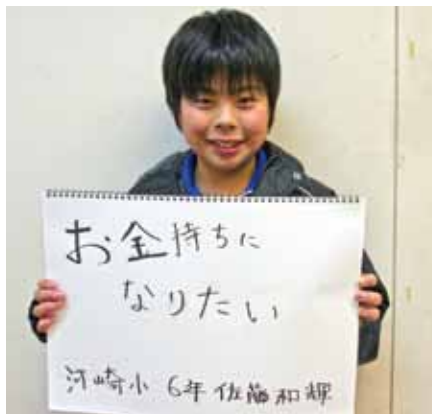 お金持ちに
なりたい
河崎小 6年 佐藤和輝